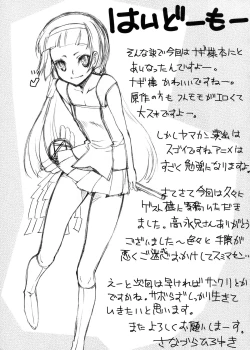 はいどーもー
そんな訳で今回はナギ様本にと
あいなったんですよー。
ナギ様かわいいですねー。
原作の方もフルモモがエロくて
大スキですよー。
しかしヤマカン演出は
スゴイですねアニメは
すごく勉強になりますな
さてさて今回は久々に
ゲスト様に寄稿いただき
ました。高永兄さんありがとう
ございました〜色々と
悪くご迷惑おかけしてスミマセン…
えーと次回は早ければサンクリとか
ですかね。サボらずしっかり生きて
いきたいと思います。
またよろしくお願いしまーす。
さなづらひろゆき